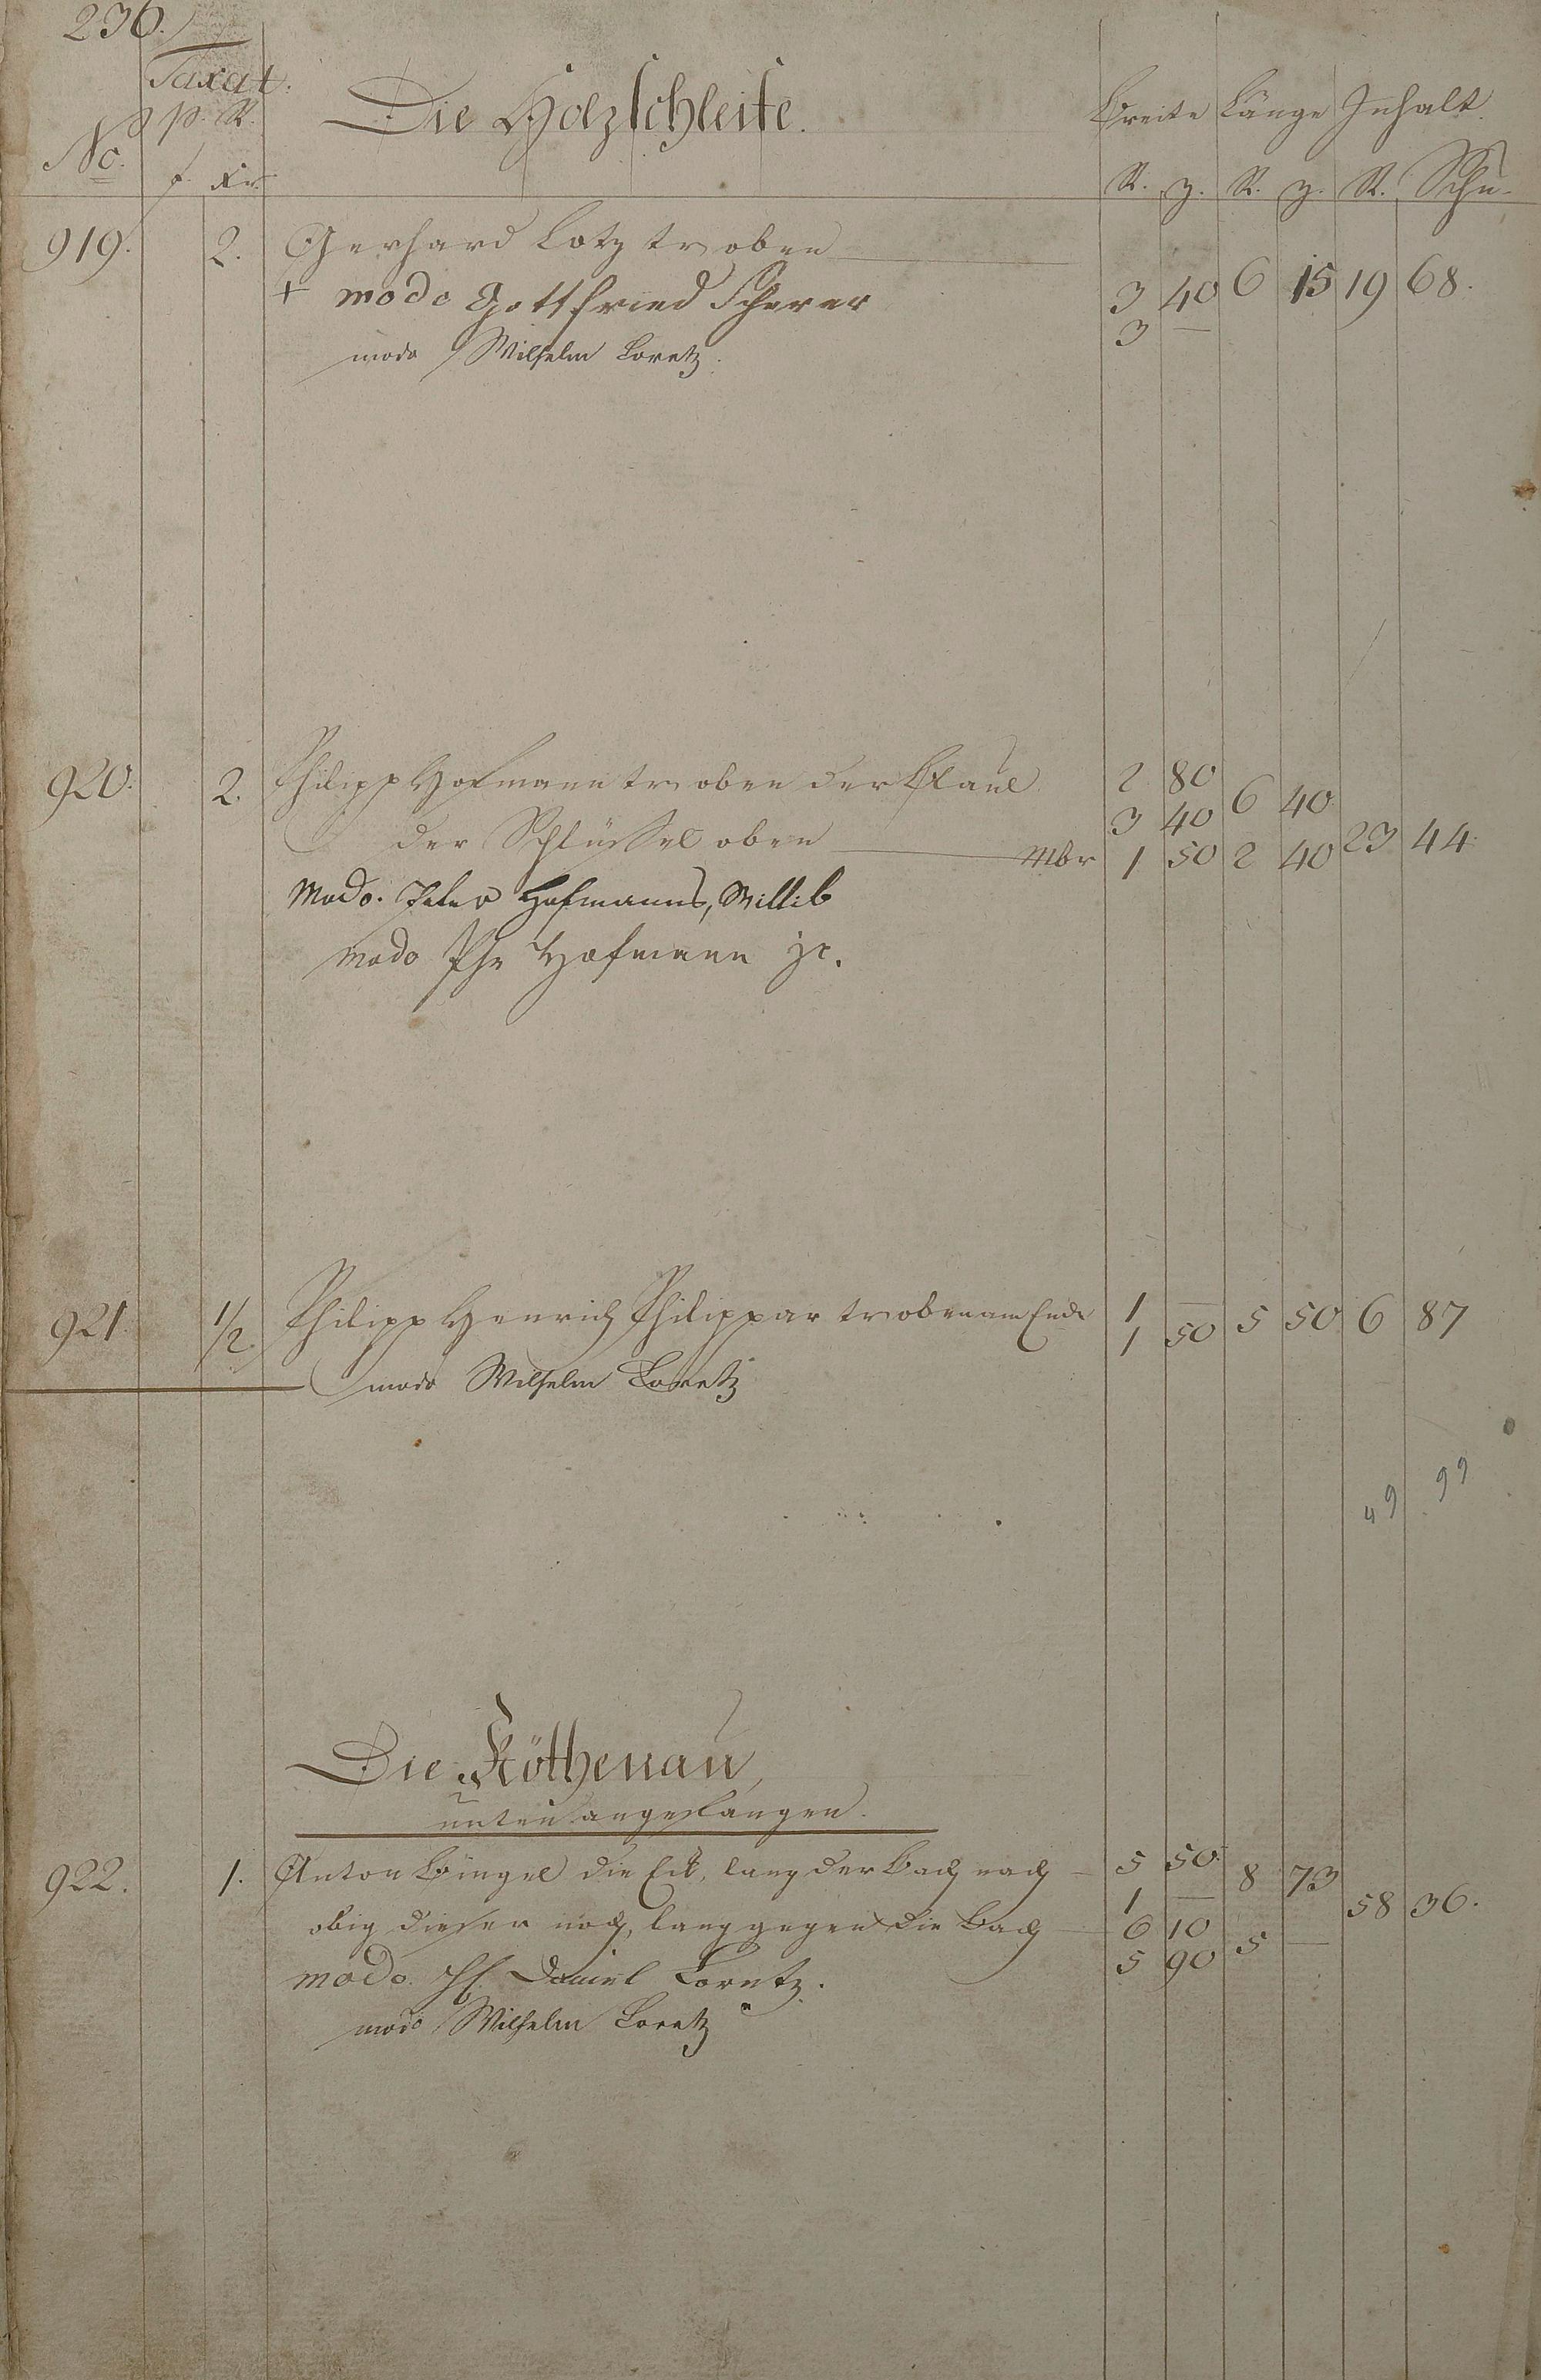 236.
Taxat.
p. R.
Die Holzschleife.
Breite Länge Inhalt.
No. f. xr. R. z. R. z. R. Schu.
919. 2. Gerhard Lotz tr oben 3 40 6 15 19 68.
+ modo Gottfried Scherer 3 —
modo Wilhelm Loretz.
920. 2. Philipp Hofmann tr oben der 2 80 6 40
3 40
der Schlüssel oben Mbr 1 50 2 40 23 44
Modo. Peter Hofmanns, Wittib
modo Phr Hofmann
921. 1/2. Philipp Henrich Philippar tr oben am Ende 1 — 5 50 6 87
1 50
modo Wilhelm Loretz
49 99
Die Röthenau,
unten angefangen.
922. 1. Anton Büngel die Eck, lang der Bach nach 5 50 8 73
1 —
obig dieser noch, lang gegen die Bach 6 10 5 — 58 36.
5 90
modo. Daniel Loretz.
modo Wilhelm Loretz